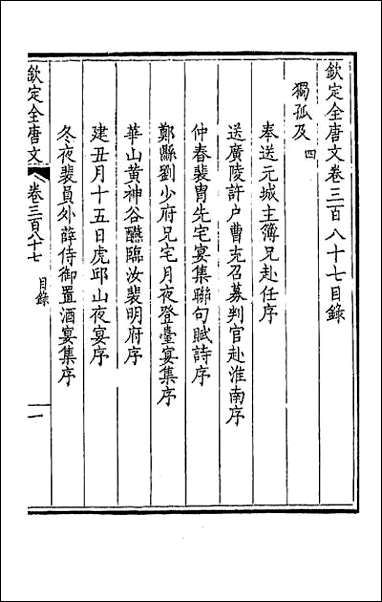 欽定全唐文卷三百八十七目錄
獨孤及 四
奉送元城主簿兄赴任序
送廣陵許户曹充召募判官赴淮南序
仲春裴胄先宅宴集聯句賦詩序
鄭縣劉少府兄宅月夜登臺宴集序
華山黃神谷讌臨汝裴明府序
建丑月十五日虎邱山夜宴序
冬夜裴員外薛侍御置酒宴集序
欽定全唐文 卷三百八十七 目錄 一